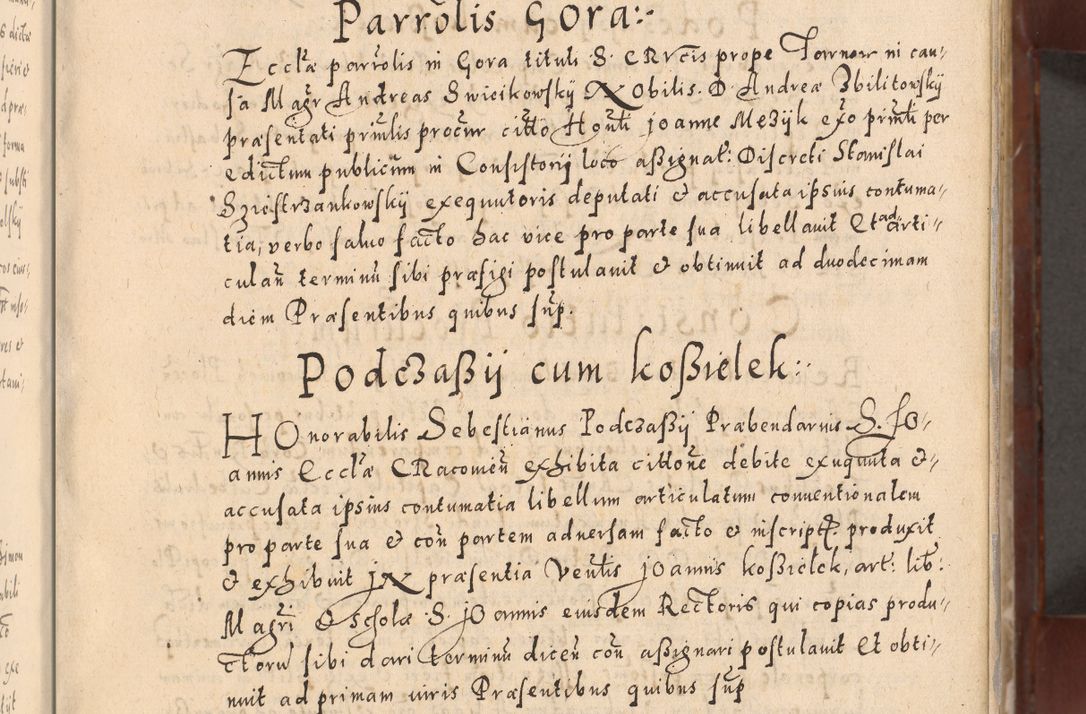 Parrolis Gora:-
Eccłæ parrolis in Gora tituli S. CRrcis prope Tarnow in cau-
sa Magr Andreas Swiecikowskÿ NObilis D. Andreæ Zbilitowskÿ
præsentati priulis procur citto Honti joanne Mezÿk exo primti per
edictum publicum in Consistorÿ loco aßignat: Discreti Stanislai
Szicstrzankowskÿ exequutoris deputati et accusata ipsius contuma-
tia, verbo saluo facto hac vice pro parte sua libellauit Et ad arti-
culan terminũ sibi præfigi postulauit et obtinuit ad duodecimam
diem Præsentibus quibus sup.
Podczaßÿ cum koßielek:-
HOnorabilis Sebestianus Podczaßÿ Præbendarius S. JO-
annis Eccłæ CRacouieñ exhibita cittone debite exequuta et
accusata ipsius contumatia libellum articulatum conuentionalem
pro parte sua et coñ partem aduersam facto et inscript. produxit
et exhibuit jN præsentia Ventis jOannis koßielek, art: lib:
Magri Et Scholæ S. jOannis eiusdem Rectoris qui copias produ-
ctorũ sibi dari terminũ diceñ coñ aßignari postulauit Et obti-
nuit ad primam iuris Præsentibus quibus sup